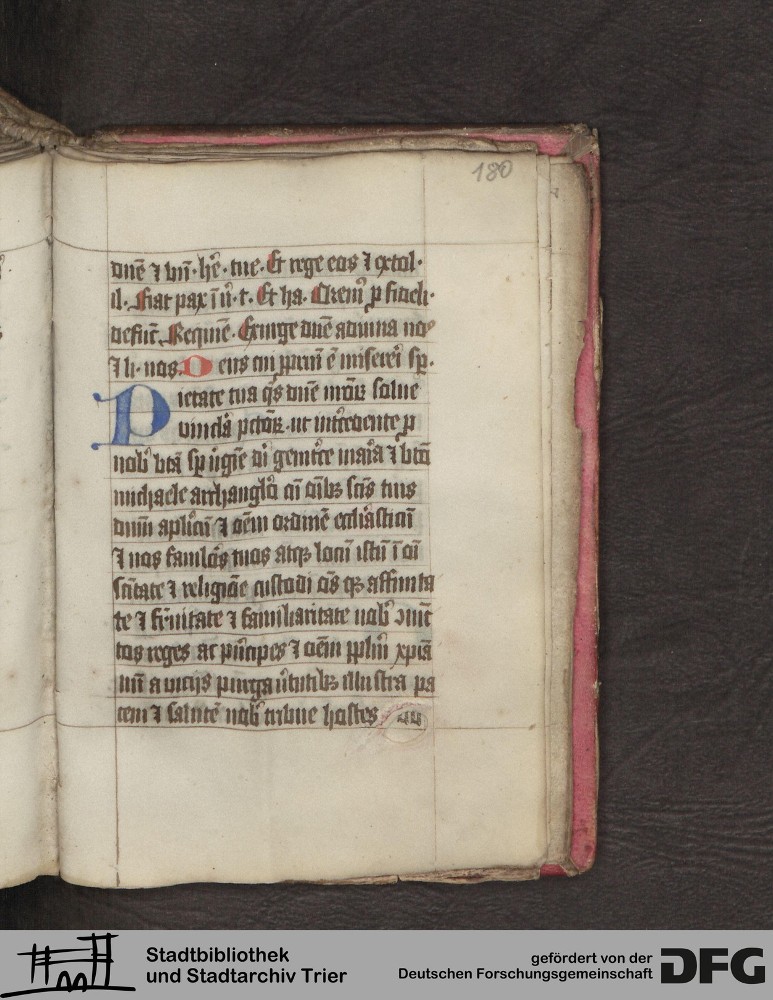 180
dnē ⁊ bn̄·hẽ·tue·Et rege eos ⁊ extol·
il·Fiat pax ī ũ·t·Et ha·Orem⁹ ꝓ fideli·
defūct̃·Requiē·Exurge dnē adiuua nos
⁊ li·nos·Deus cui ꝓpriū ē miserẽi sp̄·
Pietate tua q̄s dnē nr̄oꝝ solue
vincla pctōꝝ·ut intc̃edente ꝓ
nob̾ btā sp̄ ũgīe di genitc̃e maria ⁊ btō
michaele archanglo cū oībꝫ scīs tuis
dnm̄ aplicū ⁊ oēm ordinē eccl̃iasticū
⁊ nos famlõs tuos atqꝫ locū istū ī oī
sc̄itate ⁊ religiōe custodi oēs qꝫ affinita
te ⁊ fr̃nitate ⁊ familiaritate nob̾ ꝯiūc
tos reges ac pn̄cipes ⁊ oēm pplm̄ xp̄ia
nū a vicijs purga ũtutibꝫ illustra pa
cem ⁊ salutē nob̾ tribue hostes
Stadtbibliothek
und Stadtarchiv Trier
gefördert von der
Deutschen Forschungsgemeinschaft
DFG